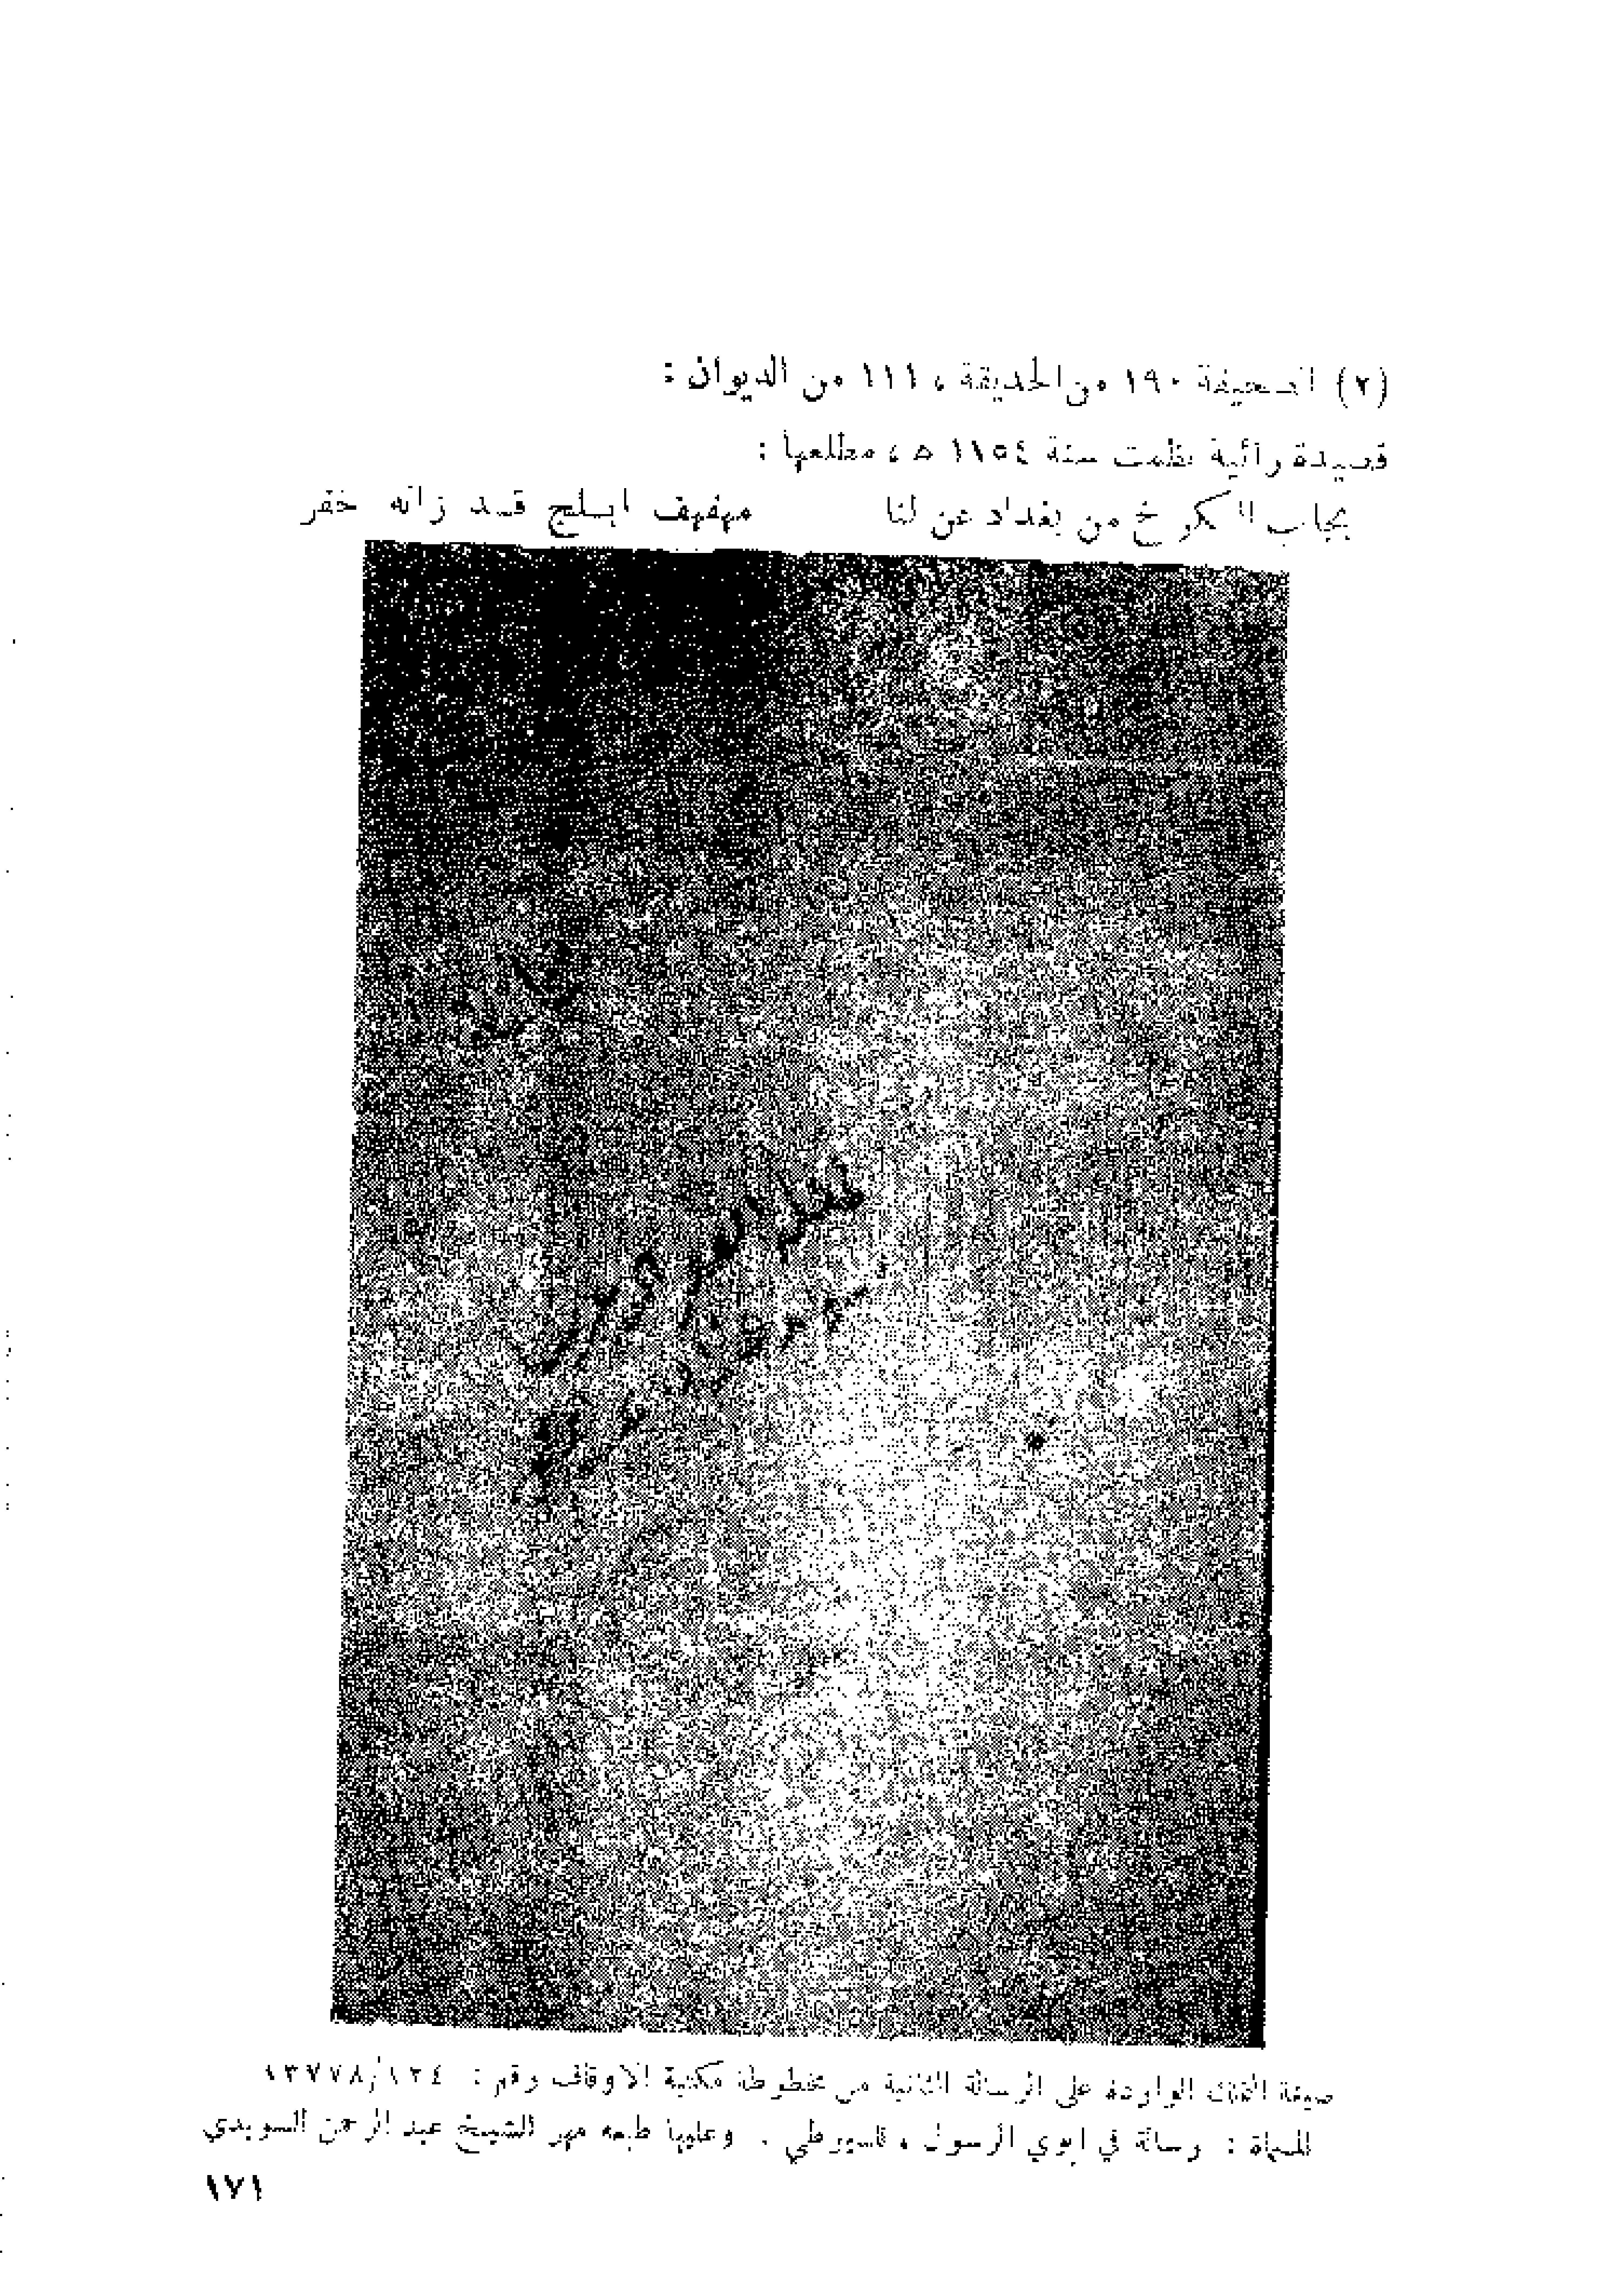 (٢) الصحيفة ١٩٠ من الحديقة ، ١١١ من الديوان :
قصيدة رائية نظمت سنة ١١٥٤ ه ، مطلعها :
بجانب الكرخ من بغداد عن لنا مهفهف ابلج قد زانه خفر
صيغة التملك الواردة على الرسالة الثانية من مخطوطة مكتبة الاوقاف رقم : ١٣٧٧٨/١٢٤
المسماة : رسالة في ابوي الرسول ، للسيوطي . وعليها طبعه مهر الشيخ عبد الرحمن السويدي
١٧١